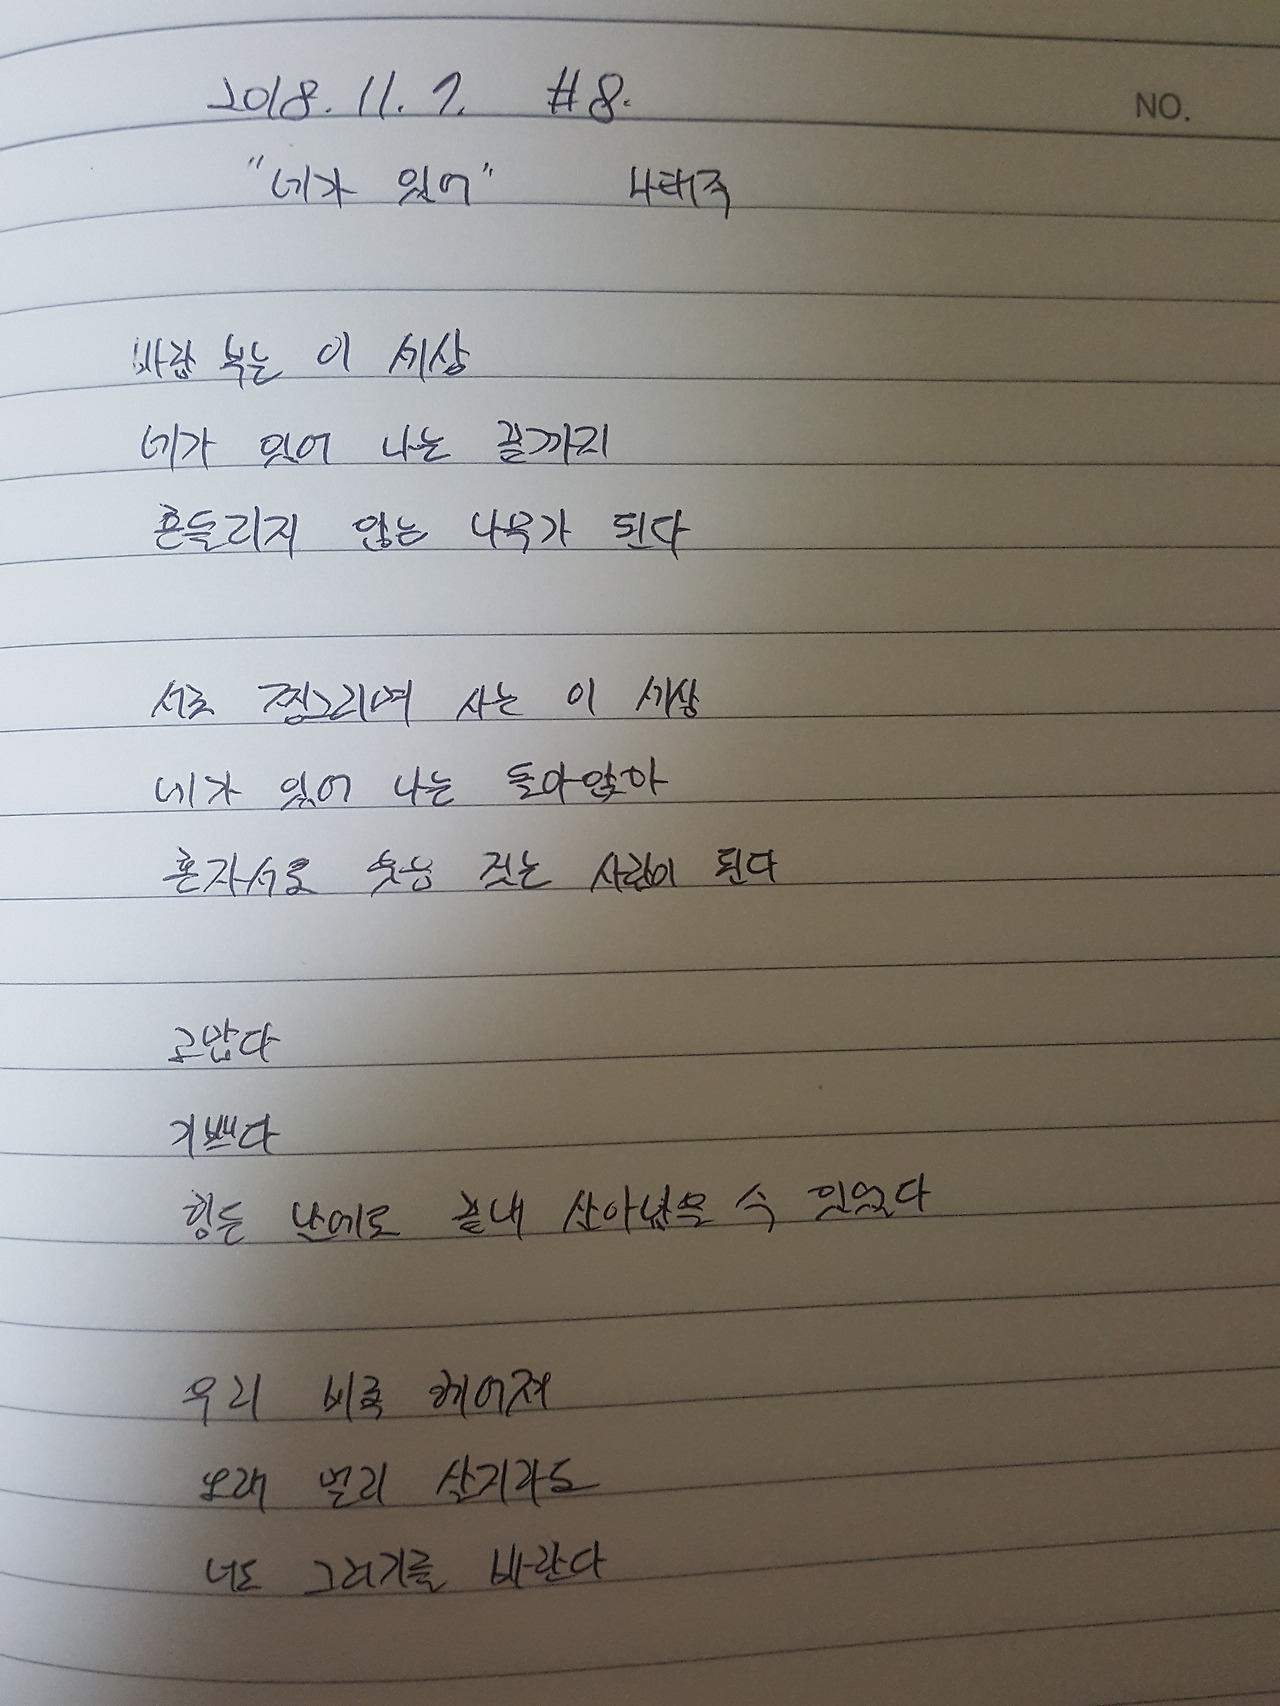 2018. 11. 7. #8.
NO.
"네가 있어" 나태주
바람 부는 이 세상
네가 있어 나는 끝까지
흔들리지 않는 나무가 된다
서로 찡그리며 사는 이 세상
네가 있어 나는 돌아앉아
혼자서도 웃음 짓는 사람이 된다
고맙다
기쁘다
힘든 날에도 끝내 살아남을 수 있었다
우리 비록 헤어져
오래 멀리 살지라도
너도 그러기를 바란다